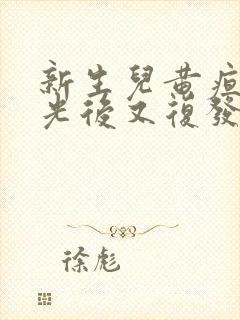 新生兒黃疸
光後又復發
徐彪